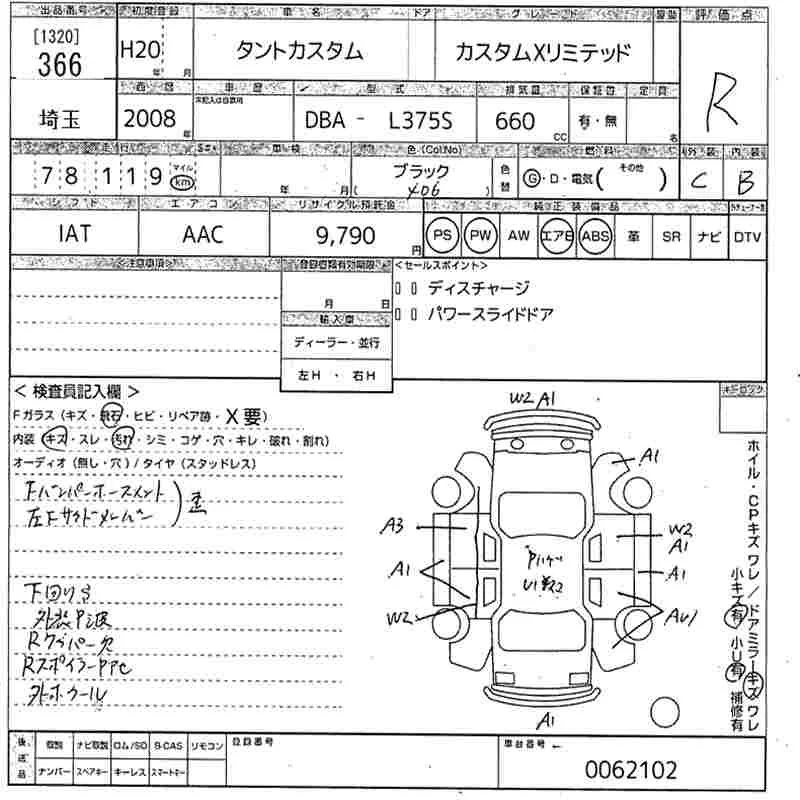 出品番号 初度登録 車名 ドア グレード 評価点
[1320]
366 H20 年 月 タントカスタム カスタムXリミテッド R
西暦 車歴 型式 排気量 保証書 定員
埼玉 2008 年 未記入は自家用 DBA - L375S 660 CC 有・無 名
走行 車検 色(Col.No) 燃料 外装 内装
78119 マイル km 年 月 ブラック 色替 G・D・電気( その他 ) C B
( X06 )
シフト エアコン リサイクル預託金 純正装備品
IAT AAC 9,790 円 PS PW AW エアB ABS 革 SR ナビ DTV
<注意事項> 登録書類有効期限 <セールスポイント>
月 日 ディスチャージ
輸入車 パワースライドドア
ディーラー・並行
左H ・ 右H
<検査員記入欄> キーロック
Fガラス(キズ・飛石・ヒビ・リペア跡・X要)
内装(キズ・スレ・汚れ・シミ・コゲ・穴・キレ・破れ・割れ)
オーディオ(無し・穴)/タイヤ(スタッドレス)
左Fサイドメンバー
歪
下回りS
外装P波
RワイパーX
RスポイラーPPC
W2 A1
A1
A3
W2
A1
A1
A1
W2
AU1
A1
ホイル・CPキズ ワレ/ドアミラーキズ ワレ
小キズ有 小U有 補修有
後送品 取説 ナビ取説 ロム/SD B-CAS リモコン 登録番号 車台番号
ナンバー スペアキー キーレス スマートキー 0062102